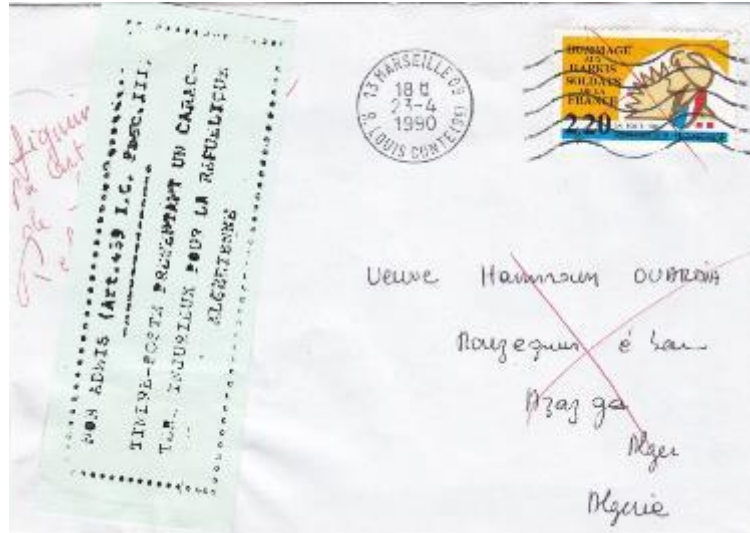 NON ADMIS (Art.459 I.C. FASC.III)
TIMBRE-POSTE PRESENTANT UN CARAC-
TERE INJURIEUX POUR LA REPUBLIQUE
ALGERIENNE
13 MARSEILLE 09
18 H
23-4
1990
R. LOUIS CONTE (DET)
HOMMAGE
AUX
HARKIS
SOLDATS
DE LA
FRANCE
2,20
Veuve Hammoum OUARDIA
Azazga
Alger
Algerie